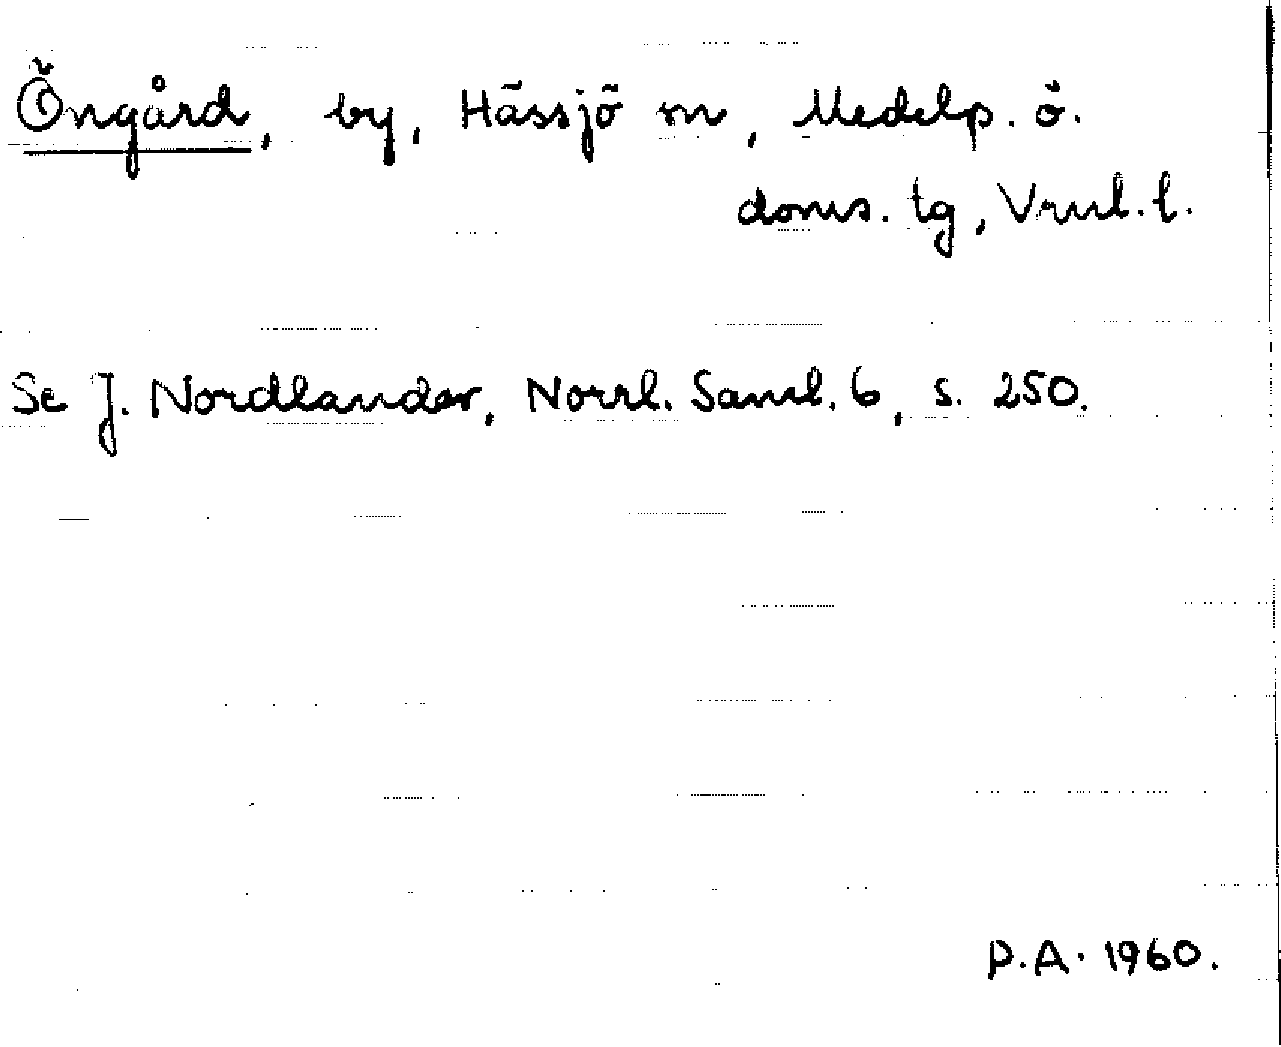 Öngård, by, Hässjö sn, Medelp. ö.
doms. tg, Vrnl. l.
Se J. Nordlander, Norrl. Saml. 6, s. 250.
P.A. 1960.